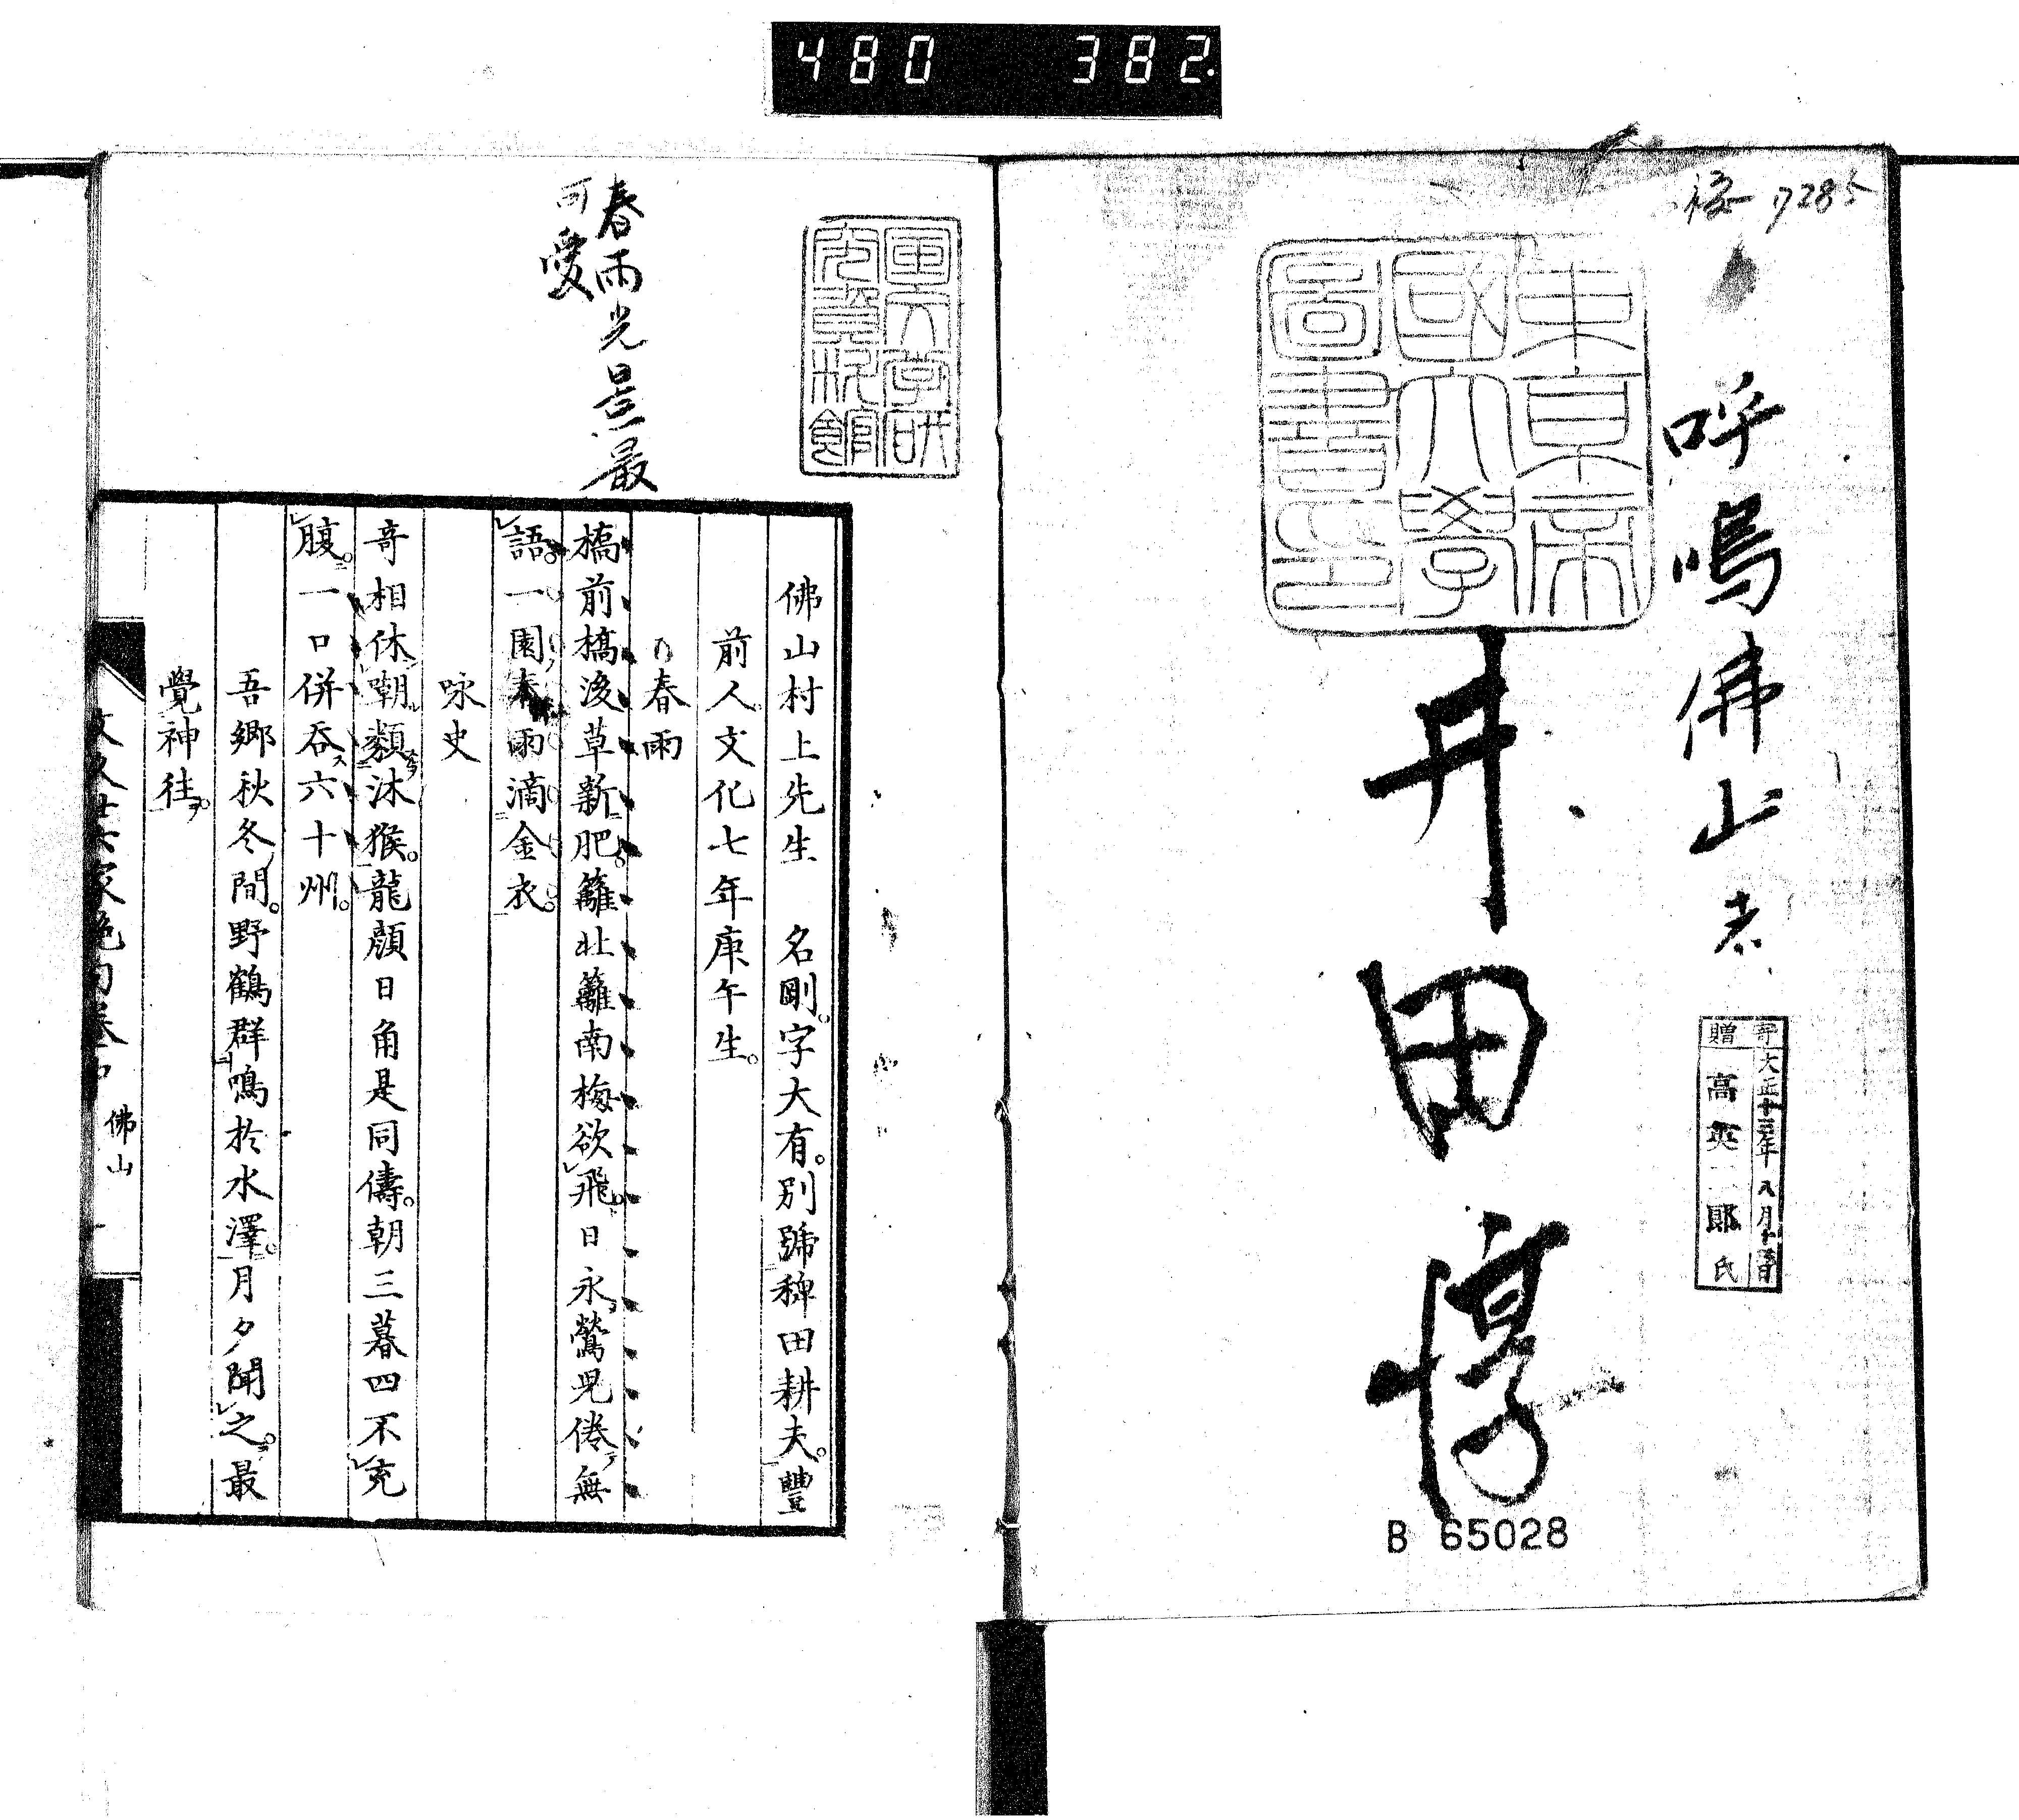 480 382.
7285
呼嗚佛山老
東京帝
國大學
圖書印
井田惇
寄贈
大正十三年八月十五日
高英二郎氏
B 65028
春雨光景最
可愛
佛山村上先生 名剛。字大有。別號稗田耕夫。豐
前人文化七年庚午生。
春雨
橋前橋後草新肥。籬北籬南梅欲飛。日永鶯児倦無
語。一園春雨滴金衣。
咏史
奇相休嘲類沐猴。龍顏日角是同儔。朝三暮四不充
腹。一口併吞六十州。
吾鄉秋冬間。野鶴群鳴於水澤。月夕聞之。最
覺神往。
佛山